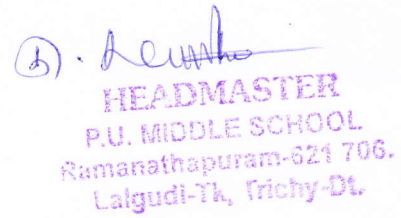 HEADMASTER
P.U. MIDDLE SCHOOL
Ramanathapuram-621 706.
Lalgudi-Tk, Trichy-Dt.